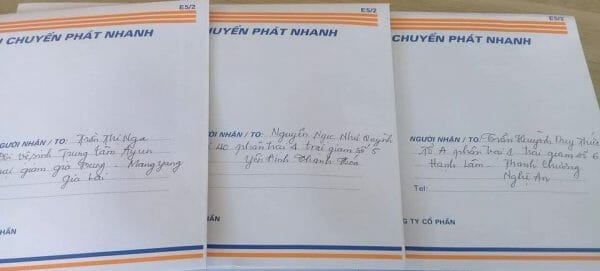 E5/2
CHUYỂN PHÁT NHANH
NGƯỜI NHẬN / TO: Trần Thị Nga
Đội vệ sinh Trung tâm Ayun
trại giam gia trung - Mang yang
Gia Lai
HẦN
E5/2
CHUYỂN PHÁT NHANH
NGƯỜI NHẬN / TO: Nguyễn Ngọc Như Quỳnh
40 phân trại 4 trại giam số 5
Yên Định Thanh Hóa
HẦN
E5/2
CHUYỂN PHÁT NHANH
NGƯỜI NHẬN / TO: Trần Huỳnh Duy Thức
K2 A phân trại 4 trại giam số 6
Hạnh Lâm - Thanh Chương
Nghệ An
Tel:
G TY CỔ PHẦN